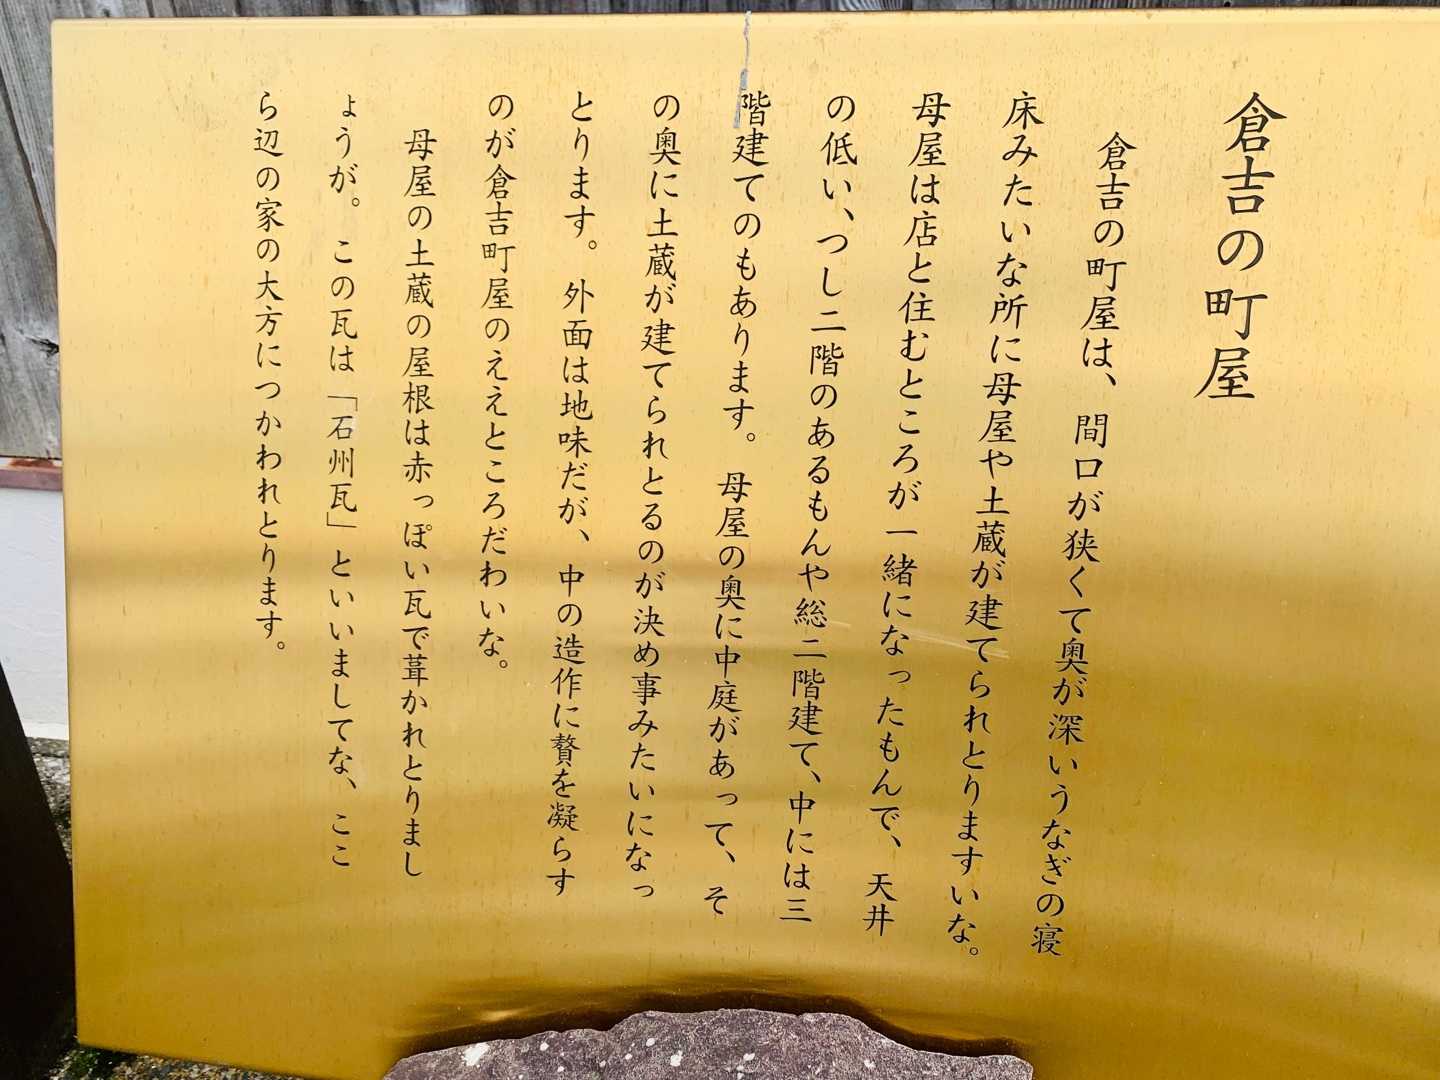 倉吉の町屋
倉吉の町屋は、間口が狭くて奥が深いうなぎの寝
床みたいな所に母屋や土蔵が建てられとりますいな。
母屋は店と住むところが一緒になったもんで、天井
の低い、つし二階のあるもんや総二階建て、中には三
階建てのもあります。母屋の奥に中庭があって、そ
の奥に土蔵が建てられとるのが決め事みたいになっ
とります。外面は地味だが、中の造作に贅を凝らす
のが倉吉町屋のええところだわいな。
母屋の土蔵の屋根は赤っぽい瓦で葺かれとりまし
ょうが。この瓦は「石州瓦」といいましてな、ここ
ら辺の家の大方につかわれとります。